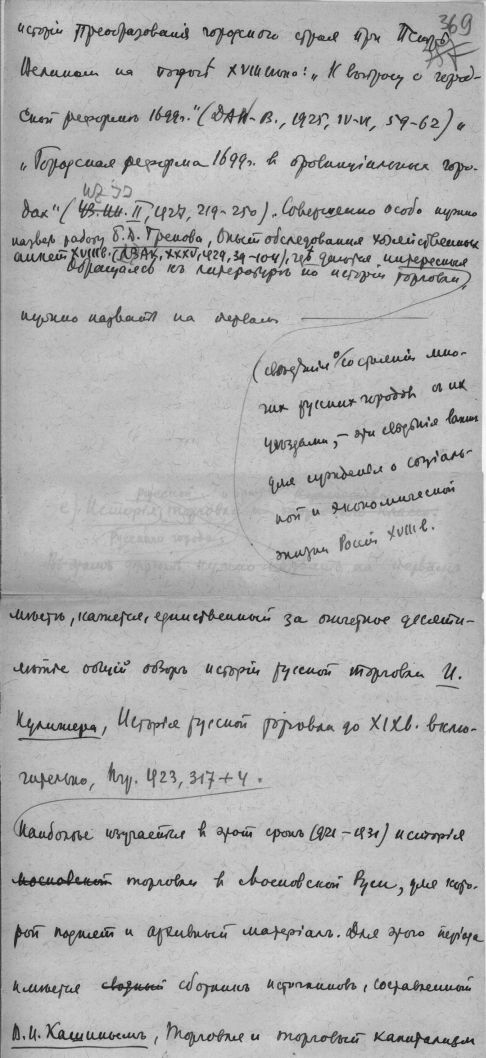 369
исторiи преобразованiя городского строя при Петрѣ
Великомъ на порогѣ XVIII вѣка: „К вопросу о город-
ской реформѣ 1699г." (ДАН-В., 1925, IV-VI, 59-62) и
„Городская реформа 1699г. в провинцiальных горо-
дах" (II, 1927, 219-250). Совершенно особо нужно
назвать работу Б.Д. Грекова, Опыт обследования хозяйственных
анкет XVIIIв. (ЛЗАК, XXXV, 1929, 39-104), гдѣ даются интересныя
Обращаясь къ литературѣ по исторiи торговли,
нужно назвать на первомъ
(свѣдѣнiя о состоянiи мно-
гих русских городов съ их
уѣздами, - эти свѣдѣнiя важны
для сужденiя о соцiаль-
ной и экономической
жизни Россiи XVIIIв.
мѣстѣ, кажется, единственный за отчетное десяти-
лѣтiе общiй обзоръ исторiи русской торговли И.
Кулишера, Исторiя русской торговли до XIXв. вклю-
чительно, Птр. 1923, 317+4.
Наиболѣе изучается в этот срокъ (1921-1931) исторiя
московской торговли в Московской Руси, для кото-
рой поднят и архивный матерiалъ. Для этого перiода
имѣется сводный сборникъ источниковъ, составленный
В.Н. Кашинымъ, Торговля и торговый капитализм